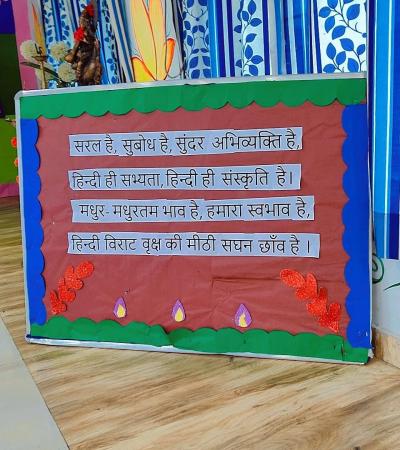 सरल है, सुबोध है, सुंदर अभिव्यक्ति है,
हिन्दी ही सभ्यता, हिन्दी ही संस्कृति है।
मधुर-मधुरतम भाव है, हमारा स्वभाव है,
हिन्दी विराट वृक्ष की मीठी सघन छाँव है।